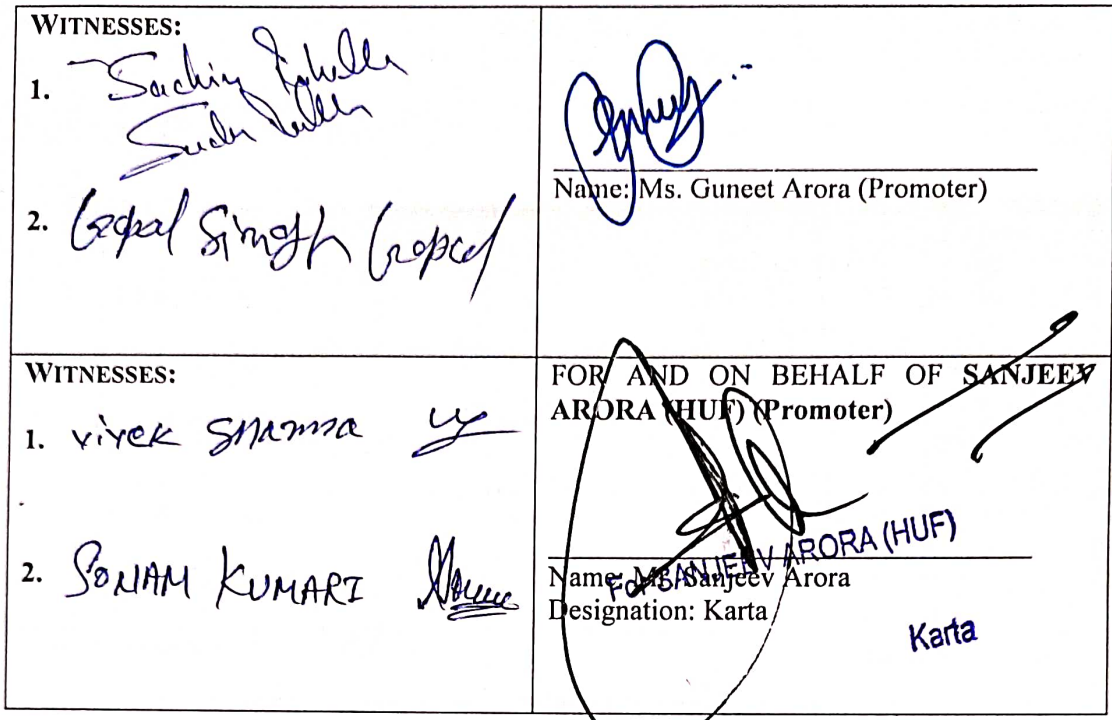 WITNESSES:
1. Sachin
2. Gopal Singh Gopal
Name: Ms. Guneet Arora (Promoter)
WITNESSES:
1. vivek sharma
2. SONAM KUMARI
FOR AND ON BEHALF OF SANJEEV
ARORA (HUF) (Promoter)
For SANJEEV ARORA (HUF)
Name: Mr. Sanjeev Arora
Designation: Karta
Karta